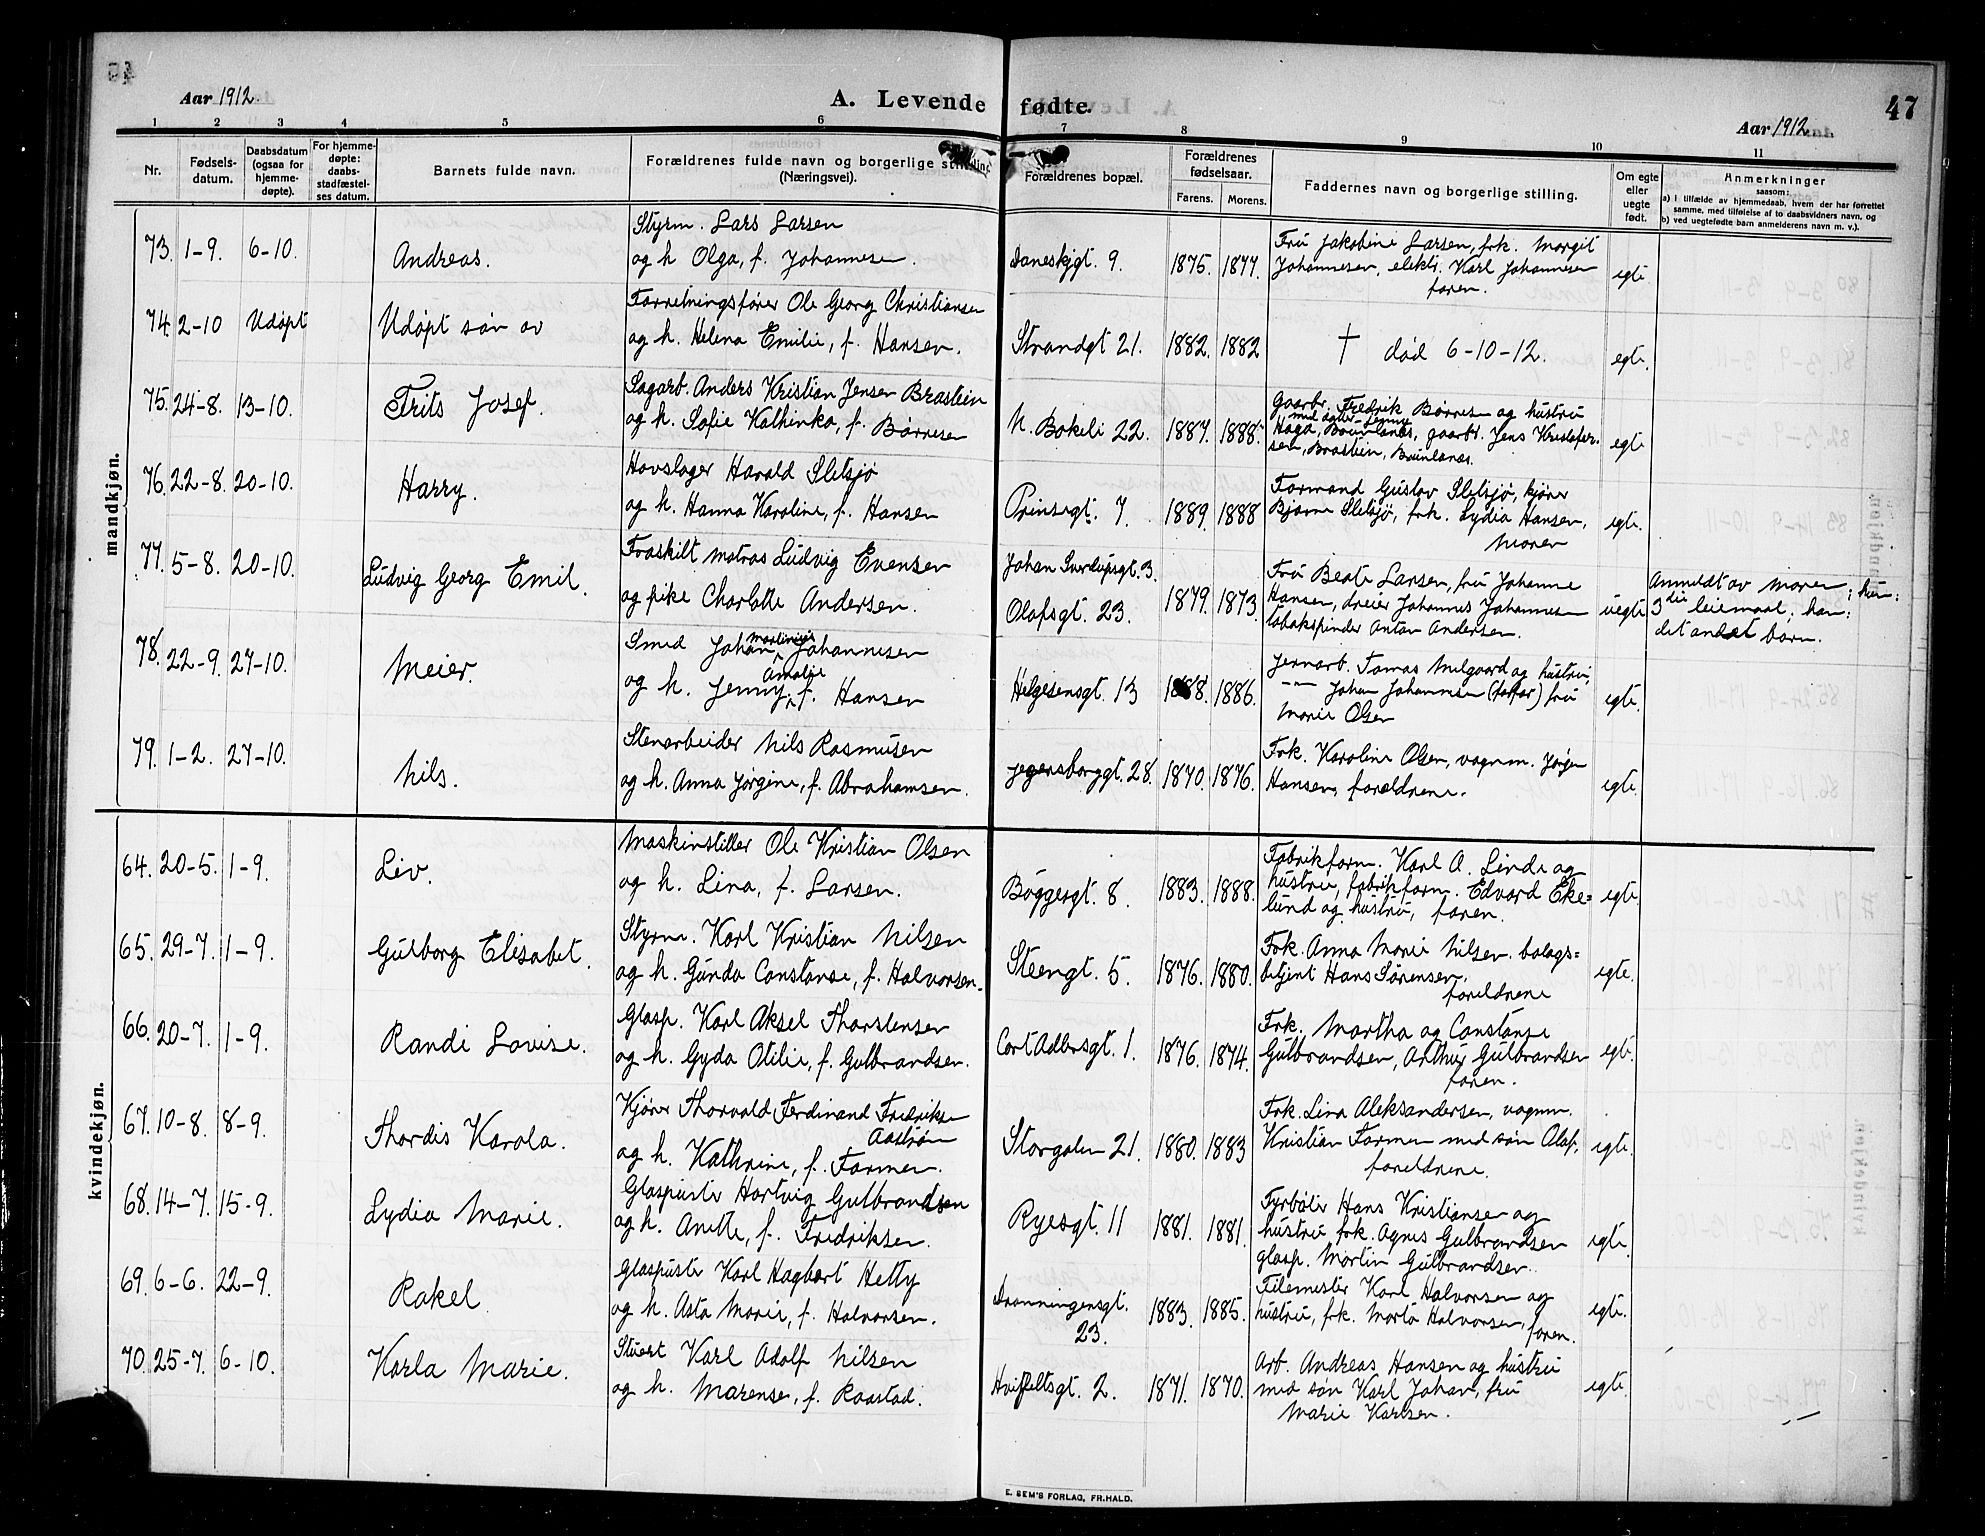 Aar 1912.
A. Levende fødte.
Aar 1912.
47
1 2 3 4 5 6 7 8 9 10 11
Nr.
Fødsels-
datum.
Daabsdatum
(ogsaa for
hjemme-
døpte).
For hjemme-
døpte:
daabs-
stadfæstel-
ses datum.
Barnets fulde navn.
Forældrenes fulde navn og borgerlige stilling
(Næringsvei).
Forældrenes bopæl.
Forældrenes
fødselsaar.
Farens. Morens.
Faddernes navn og borgerlige stilling.
Om egte
eller
uegte
født.
Anmerkninger
saasom:
a) i tilfælde av hjemmedaab, hvem der har forrettet
samme, med tilføielse af to daabsvidners navn, og
b) ved uegtefødte barn anmelderens navn m. v.).
mandkjøn.
Styrm. Lars Larsen
73. 1-9. 6-10. Andreas. og h Olga, f. Johannesen. Daneskjgt. 9. 1875. 1877. Fru Jakobine Larsen, frk. Margit
Johannesen, elektr. Karl Johannesen
faren. egte
Forretningsfører Ole Georg Christiansen
74. 2-10 Udøpt Udøpt søn av og h. Helena Emilie, f. Hansen. Strandgt 21. 1882. 1882 † død 6-10-12. egte.
Sagarb. Anders Kristian Jensen Brastein
75. 24-8. 13-10. Frits Josef. og h. Sofie Kathinka, f. Børresen N. Bakeli 22. 1887. 1888. Gaarbr. Fredrik Børresen og hustru
Haga, Brunlanes, gaarbr. Jens Kristofer-
sen, Brastein, Brunlanes. egte
Hovslager Harald Sletsjø
76. 22-8. 20-10. Harry. og h. Hanna Karoline, f. Hansen Prinsegt. 7. 1889. 1888 Formand Gustav Sletsjø, kjører
Bjarne Sletsjø, frk. Lydia Hansen,
moren egte.
Fraskilt matros Ludvig Evensen
77. 5-8. 20-10. Ludvig Georg Emil. og pike Charlotte Andersen. Johan Sverdrupsgt. 3.
Olafsgt. 23. 1879. 1873. Fru Beate Larsen, fru Johanne
Hansen, dreier Johannes Johannesen
tobakspinder Anton Andersen. uegte Anmeldt av moren; hun:
3die leiemaal; han:
det andet barn.
Smed Johan Martinius Johannesen
78. 22-9. 27-10. Meier. og h. Jenny Amalie f. Hansen Helgesensgt. 13 1888. 1886. Jernarb. Tomas Melgaard og hustru,
—"— Johan Johannesen (farfar) fru
Marie Olsen egte.
Stenarbeider Nils Rasmusen
79. 1-2. 27-10. Nils. og h. Anna Jørgine, f. Abrahamsen. Jegersborggt. 28. 1870. 1876. Frk. Karoline Olsen, vognm. Jørgen
Hansen, forældrene. egte.
kvindekjøn.
Maskinstiller Ole Kristian Olsen
64. 20-5. 1-9. Liv. og h. Lina, f. Larsen. Bøggesgt. 8. 1883. 1888. Fabrikform. Karl A. Linde og
hustru, fabrikform. Edvard Eke-
lund og hustru, faren. egte.
Styrm. Karl Kristian Nilsen
65. 29-7. 1-9. Gulborg Elisabet. og h. Gunda Constanse, f. Halvorsen. Steengt. 5. 1876. 1880. Frk. Anna Marie Nilsen. bolags-
betjent Hans Sørensen,
forældrene egte.
Glasp. Karl Aksel Thorstensen
66. 20-7. 1-9. Randi Lovise. og h. Gyda Otilie, f. Gulbrandsen. Cort Adlersgt. 1. 1876. 1874. Frk. Martha og Constanse
Gulbrandsen, Arthur Gulbrandsen
faren. egte.
Kjører Thorvald Ferdinand Fredriksen
Aastrøm
67. 10-8. 8-9. Thordis Karola. og h. Kathrine, f. Farmen. Storgaten 21. 1880. 1883 Frk. Lina Aleksandersen, vognm.
Kristian Farmen med søn Olaf,
forældrene. egte.
Glaspuster Hartvig Gulbrandsen
68. 14-7. 15-9. Lydia Marie. og h. Anette, f. Fredriksen. Ryesgt. 11 1881. 1881. Fyrbøter Hans Kristiansen og
hustru, frk. Agnes Gulbrandsen
glasp. Martin Gulbrandsen. egte.
Glaspuster Karl Hagbart Hetty
69. 6-6. 22-9. Rakel og h. Asta Marie, f. Halvorsen. Dronningensgt.
23. 1883. 1885. Filemester Karl Halvorsen og
hustru, frk. Marta Halvorsen,
faren. egte.
Stuert Karl Adolf Nilsen
70. 25-7. 6-10. Karla Marie. og h. Marense, f. Raastad. Hvitfeltsgt. 2. 1871. 1870. Arb. Andreas Hansen og hustru
med søn Karl Johan, fru
Marie Karlsen. egte.
E. SEM'S FORLAG, FR.HALD.